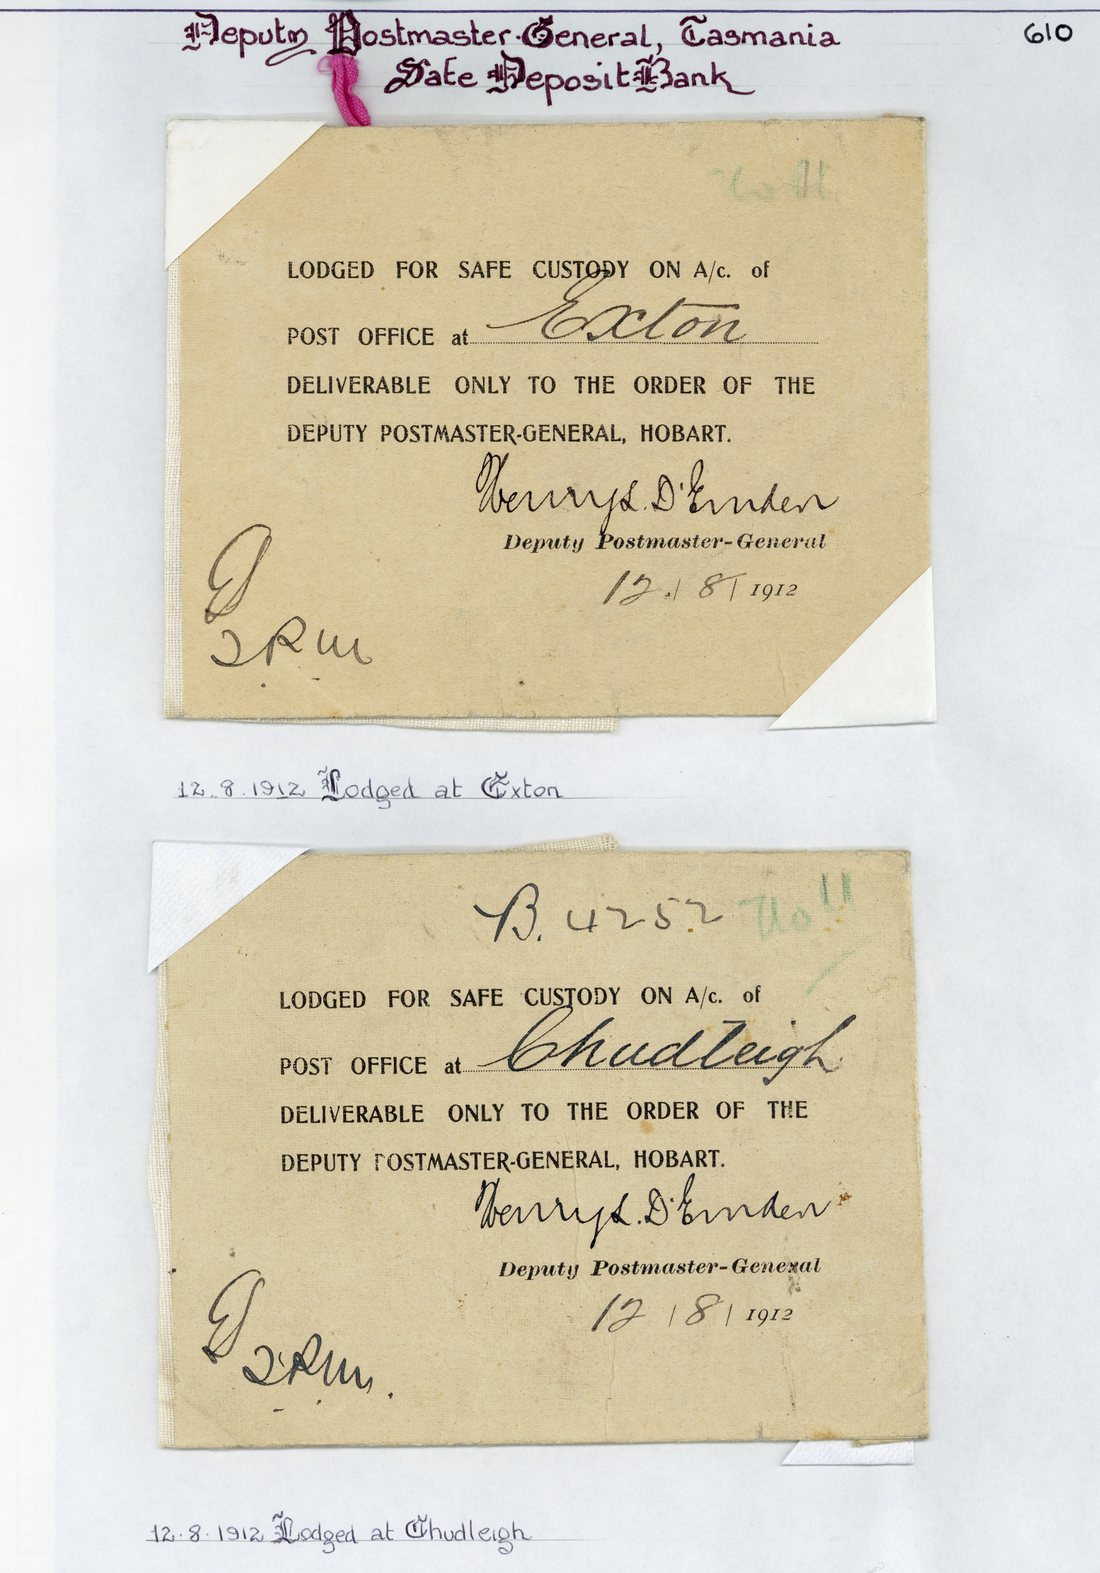 Deputy Postmaster-General, Tasmania
610
Safe Deposit Bank
LODGED FOR SAFE CUSTODY ON A/c. of
POST OFFICE at Exton
DELIVERABLE ONLY TO THE ORDER OF THE
DEPUTY POSTMASTER-GENERAL, HOBART.
Henry L. D'Emden
Deputy Postmaster-General
12.|8|1912
12.8.1912 Lodged at Exton
B. 4252
LODGED FOR SAFE CUSTODY ON A/c. of
POST OFFICE at Chudleigh
DELIVERABLE ONLY TO THE ORDER OF THE
DEPUTY POSTMASTER-GENERAL, HOBART.
Henry L. D'Emden
Deputy Postmaster-General
12|8|1912
12.8.1912 Lodged at Chudleigh